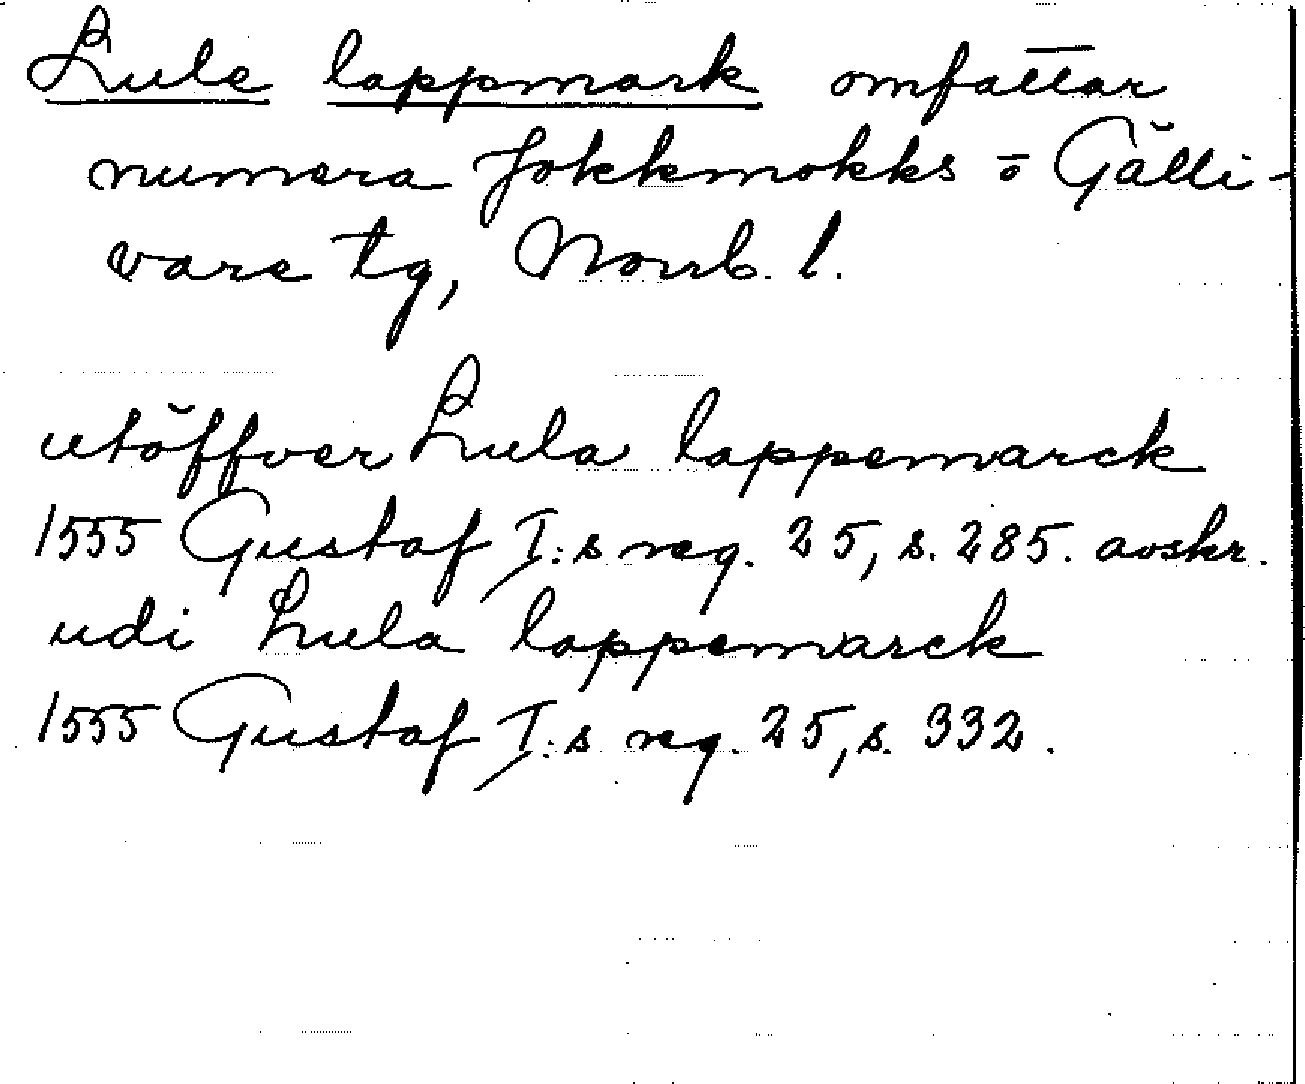 Lule lappmark omfattar
numera Jokkmokks o Gälli-
vare tg, Norrb. l.
utöffver Lula lappemarck
1555 Gustaf I:s reg. 25, s. 285. avskr.
udi Lula lappemarck
1555 Gustaf I:s reg. 25, s. 332.